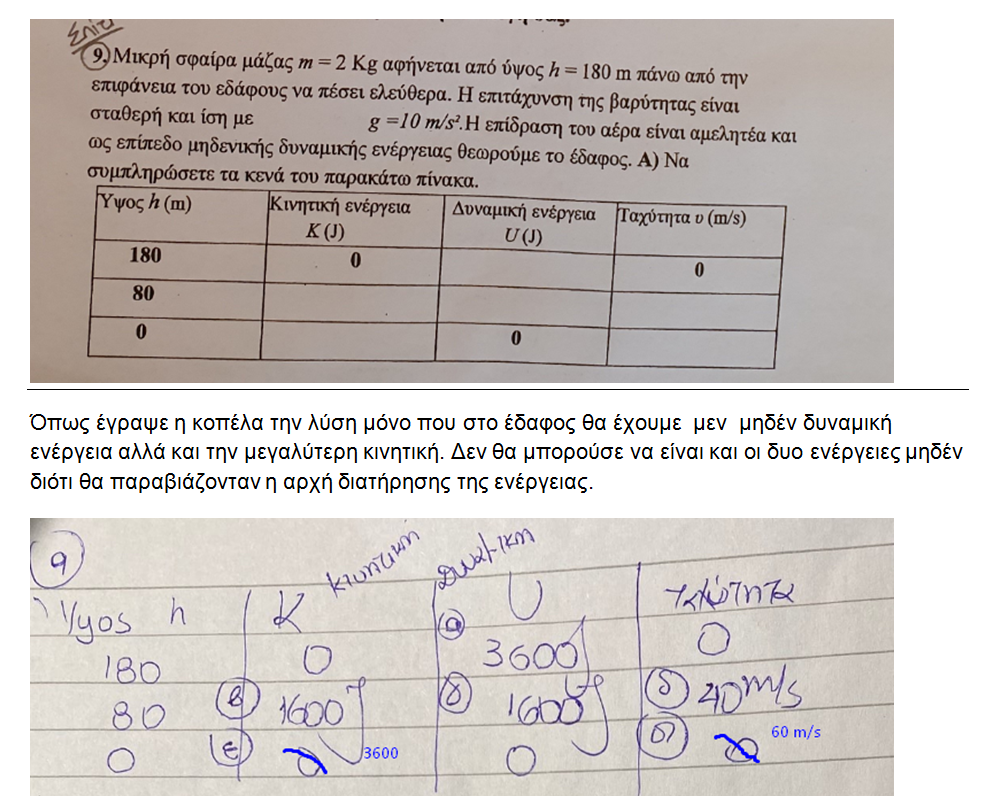 Σπίτι
9. Μικρή σφαίρα μάζας m = 2 Kg αφήνεται από ύψος h = 180 m πάνω από την
επιφάνεια του εδάφους να πέσει ελεύθερα. Η επιτάχυνση της βαρύτητας είναι
σταθερή και ίση με g =10 m/s².Η επίδραση του αέρα είναι αμελητέα και
ως επίπεδο μηδενικής δυναμικής ενέργειας θεωρούμε το έδαφος. Α) Να
συμπληρώσετε τα κενά του παρακάτω πίνακα.
Υψος h (m) Κινητική ενέργεια Δυναμική ενέργεια Ταχύτητα υ (m/s)
K (J) U (J)
180 0 0
80
0 0
Όπως έγραψε η κοπέλα την λύση μόνο που στο έδαφος θα έχουμε μεν μηδέν δυναμική
ενέργεια αλλά και την μεγαλύτερη κινητική. Δεν θα μπορούσε να είναι και οι δυο ενέργειες μηδέν
διότι θα παραβιάζονταν η αρχή διατήρησης της ενέργειας.
9 κινητική Δυναμικη
Υψος h K U ταχύτητα
180 0 α 3600J 0
80 β 1600J γ 1600J δ 40m/s
0 ε 3600 0 στ 60 m/s